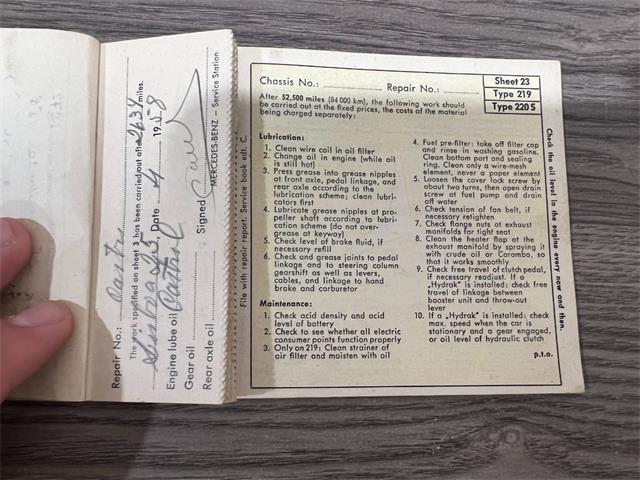 Repair No.:
The work specified on sheet 3 has been carried out after 2634 miles.
Date 4 1958
Engine lube oil
Gear oil
Rear axle oil
Signed
MERCEDES-BENZ – Service Station
File with repair report. Service book edt. C.
Chassis No.: Repair No.:
Sheet 23
Type 219
Type 220 S
After 52,500 miles (84 000 km), the following work should
be carried out at the fixed prices, the costs of the material
being charged separately:
Lubrication:
1. Clean wire coil in oil filter
2. Change oil in engine (while oil
is still hot)
3. Press grease into grease nipples
at front axle, pedal linkage, and
rear axle according to the
lubrication scheme; clean lubri-
cators first
4. Lubricate grease nipples at pro-
peller shaft according to lubri-
cation scheme (do not over-
grease at keyway)
5. Check level of brake fluid, if
necessary refill
6. Check and grease joints to pedal
linkage and to steering column
gearshift as well as levers,
cables, and linkage to hand
brake and carburetor
Maintenance:
1. Check acid density and acid
level of battery
2. Check to see whether all electric
consumer points function properly
3. Only on 219: Clean strainer of
air filter and moisten with oil
4. Fuel pre-filter: take off filter cap
and rinse in washing gasoline.
Clean bottom part and sealing
ring. Clean only a wire-mesh
element, never a paper element
5. Loosen the cover lock screw by
about two turns, then open drain
screw at fuel pump and drain
off water
6. Check tension of fan belt, if
necessary retighten
7. Check flange nuts at exhaust
manifolds for tight seat
8. Clean the heater flap at the
exhaust manifold by spraying it
with crude oil or Carambo, so
that it works smoothly
9. Check free travel of clutch pedal,
if necessary readjust. If a
„Hydrak“ is installed: check free
travel of linkage between
booster unit and throw-out
lever
10. If a „Hydrak“ is installed: check
max. speed when the car is
stationary and a gear engaged,
or oil level of hydraulic clutch
p.t.o.
Check the oil level in the engine every now and then.